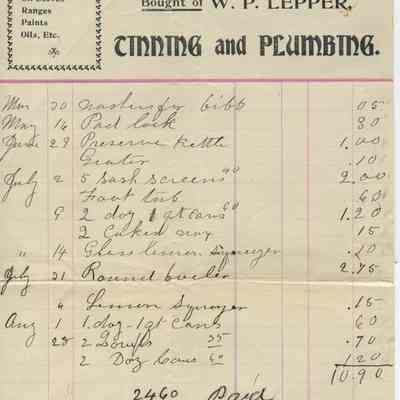 Ranges
Paints
Oils, Etc.
Bought of W. P. LEPPER,
TINNING and PLUMBING.
Mar 20 Washers for bibb .05
May 16 Pad lock 30
June 29 Preserve Kettle 1.00
Grater .10
July 2 5 Sash screens 40 2.00
Foot tub 60
9 2 doz 1 qt cans 60 1.20
2 Caked wax 15
" 14 Glass lemon Squeezer .10
July 21 Round boiler 2.75
Lemon Squeezer .15
Aug 1 1 doz - 1 qt cans 60
25 2 35 .70
2 Doz Cans 60 1 20
10.90
2460 Paid